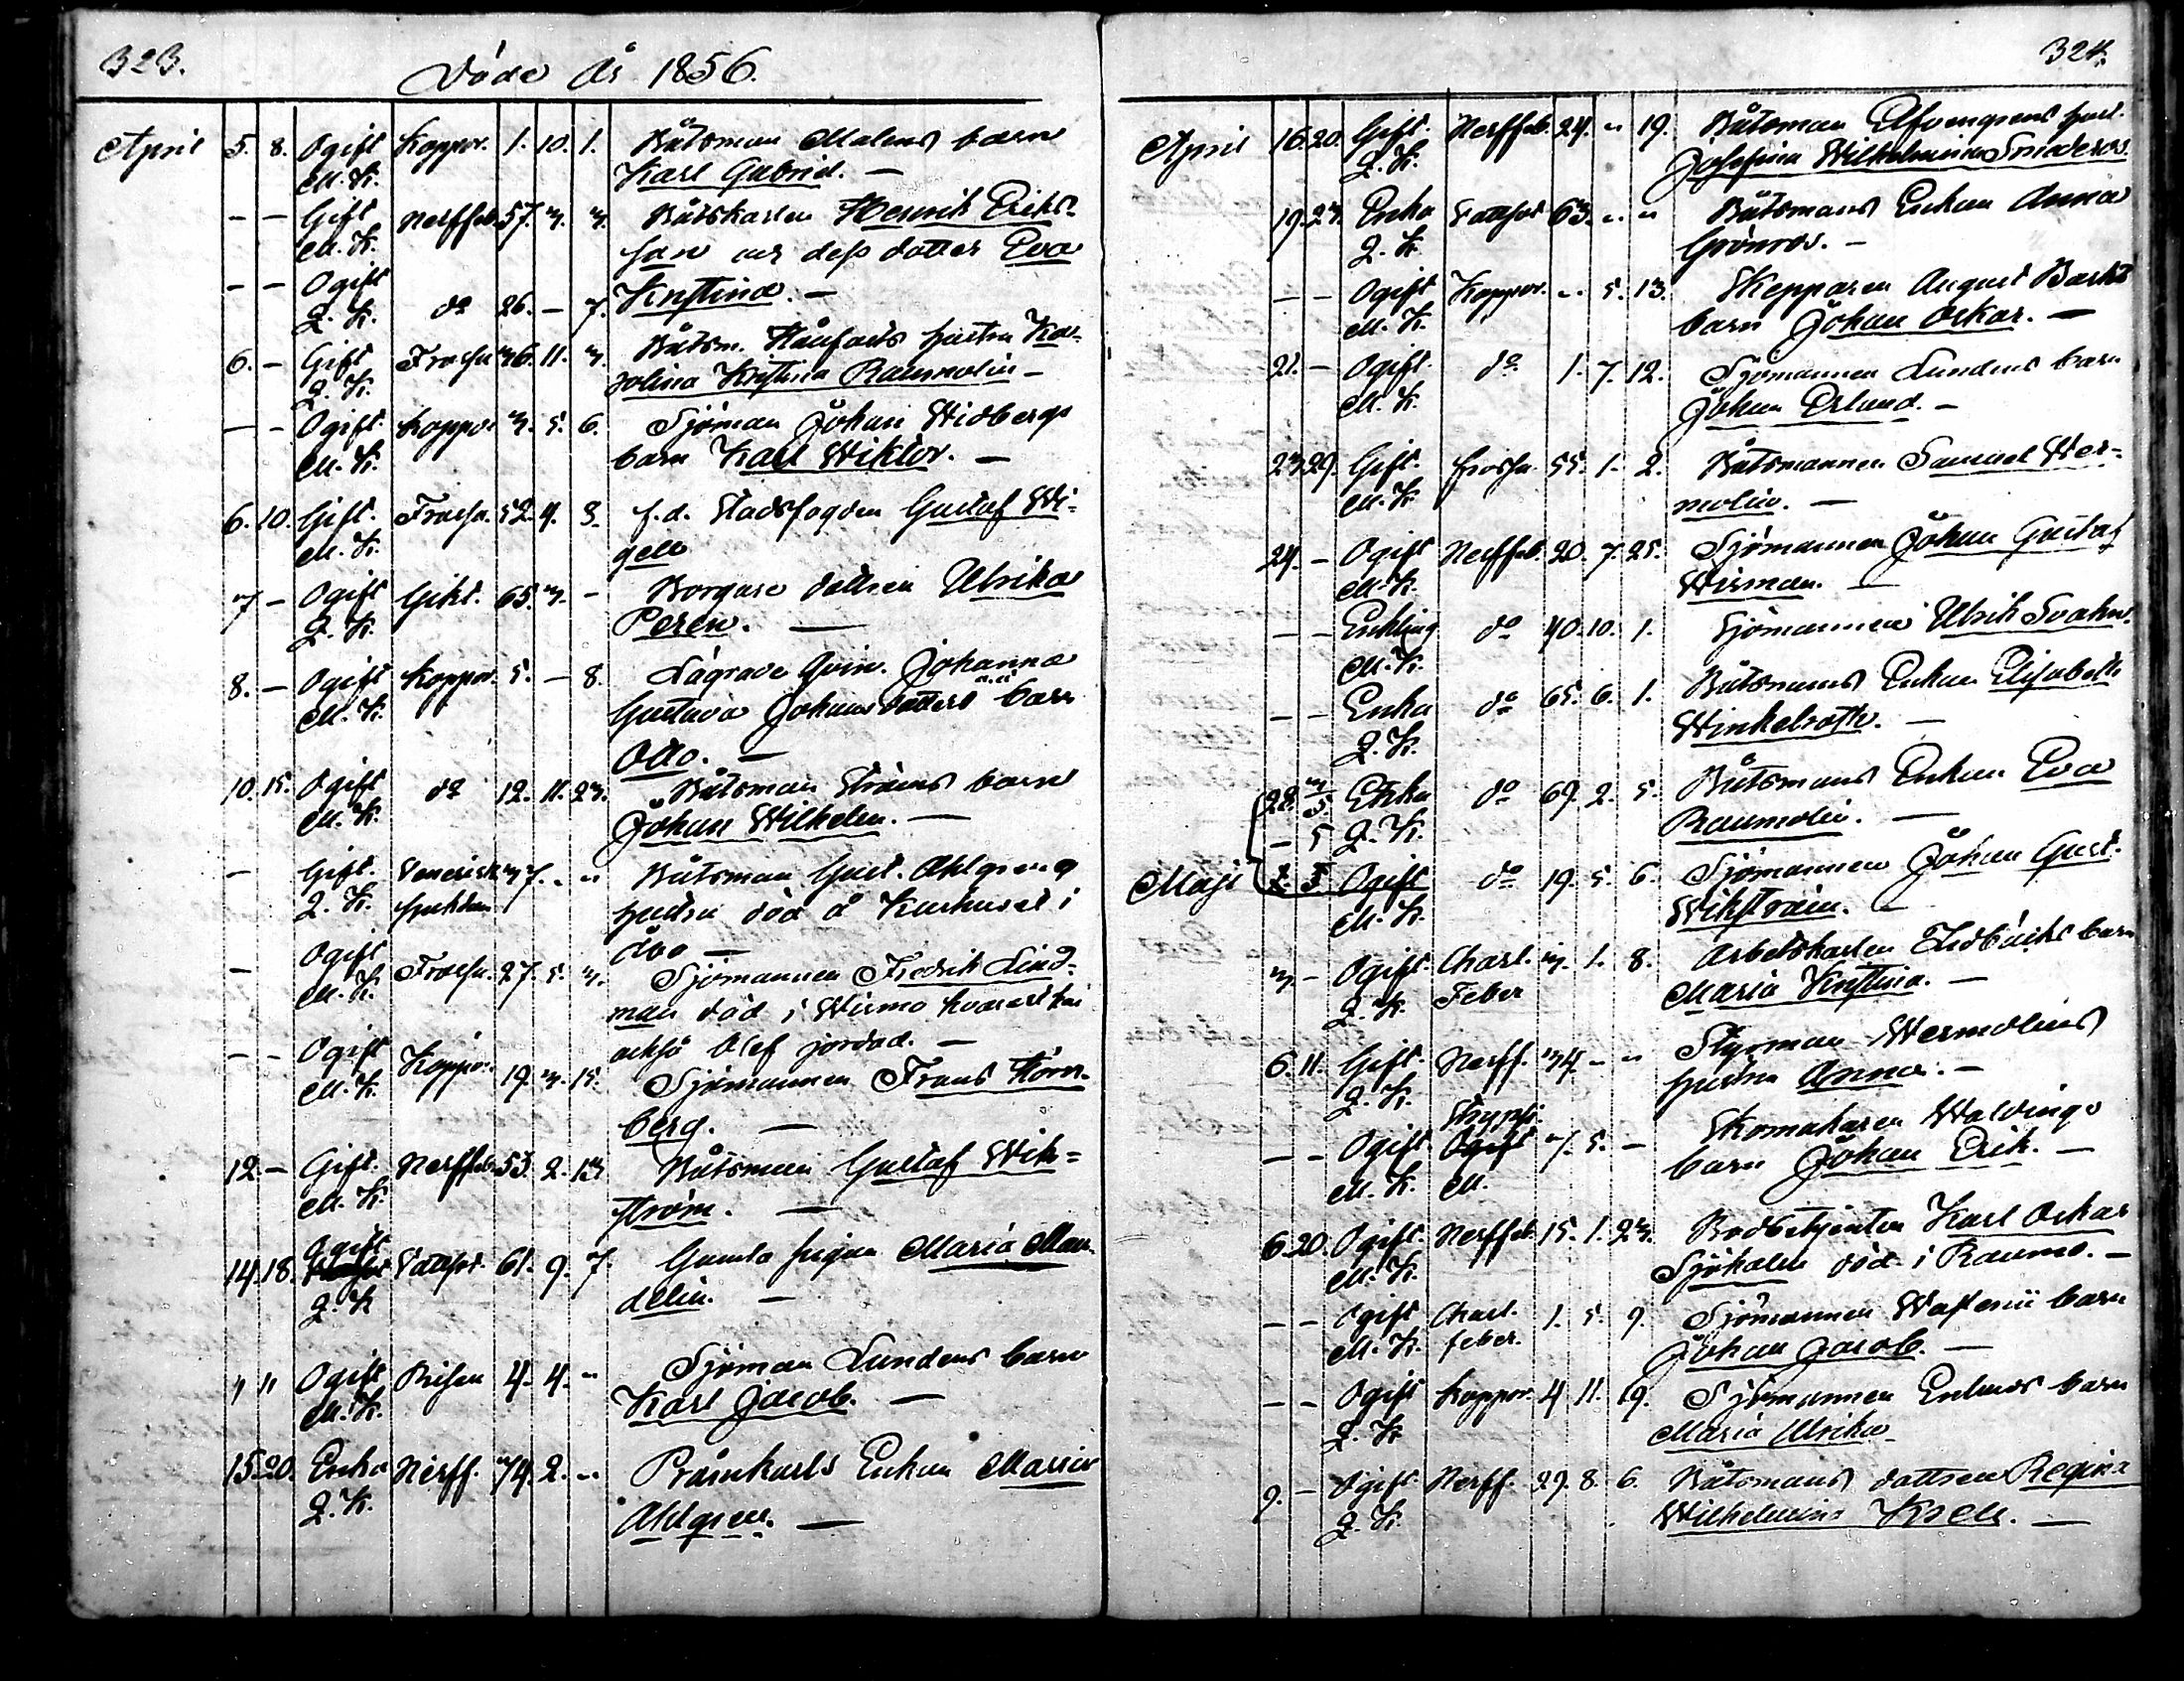 323.
Döde År 1856.
April 5. 8. Ogift Koppor. 1. 10. 1. Båtsman Malens barn
M. K. Karl Gabriel. —
— — Gift Nerffeb. 57. 3. 3. Båtskarlen Henrik Eriks-
M. K. son och dess dotter Eva
— — Ogift
Q. K. do 26. — 7. Kristina. —
6. — Gift Frossa 36. 11. 3. Båtsm. hustru Ka-
Q. K. rolina Kristina Raumolin —
— — Ogift Koppor 3. 5. 6. Sjöman Johan Widbergs
M. K. barn Karl Wiktor. —
6. 10. Gift. Frossa. 52. 4. 3. f.d. Stadsfogden Gustaf Wi-
M. K. gell
7 — Ogift Gikt. 65. 3. — Borgare dottren Ulrika
Q. K. Peren. —
8. — Ogift Koppor. 5. — 8. Lägrade Qvin. Johanna
M. K. Gustava Johansdotters barn
Otto. —
10. 15. Ogift do 12. 11. 23. Båtsman Ströms barn
M. K. Johan Wilhelm. —
— Gift. Venerisk 37. „ „ Båtsman Gust. Ahlgrens
Q. K. sjukdom hustru död å Kurhuset i
Åbo —
— Ogift Frossa. 27. 5. 3. Sjömannen Fredrik Lind-
M. K. man död i Wirmo hvarest han
också blef jordad. —
— — Ogift Koppor. 19. 3. 15. Sjömannen Frans Törn-
M. K. berg. —
12. — Gift. Nerffeb. 53. 2. 13. Båtsman Gustaf Wik-
M. K. ström. —
14. 18. Ogift Vattsot. 61. 9. 7. Gamla pigan Maria Man-
Q. K. delin. —
" " Ogift Risen 4. 4. „ Sjöman Lundens barn
M. K. Karl Jacob. —
15. 20. Enka Nerff. 74. 2. „ Pråmkarls Enkan Maria
Q. K. Ahlgren. —
324.
April 16. 20. Gift. Nerffeb. 24. „ 19. Båtsman Elfvengrens hust.
Q. K. Josefina Wilhelmina
19. 23. Enka Vattsot 63. „ „ Båtsmans Enkan Anna
Q. K. Grönros. —
— — Ogift Koppor. „ 5. 13. Skepparen August Barks
M. K. barn Johan Oskar. —
21. — Ogift. do 1. 7. 12. Sjömannen Lundens barn
M. K. Johan Erland. —
23. 29. Gift. Frossa. 55. 1. 2. Båtsmannen Samuel Wer-
M. K. molin. —
24. — Ogift Nerffeb. 20. 7. 25. Sjömannen Johan Gustaf
M. K. Wirman. —
— — Enkling do 40. 10. 1. Sjömannen Ulrik Svahn.
M. K.
— — Enka do 65. 6. 1. Båtsmans Enkan Elisabeth
Q. K. Winkelroth. —
28. 3/5. Enka do 69. 2. 5. Båtsmans Enkan Eva
— 5 Q. K. Raumolin. —
Maji 2. 5 Ogift do 19. 5. 6. Sjömannen Johan Gust.
M. K. Wikström. —
3. — Ogift. Charl. 3. 1. 8. Arbetskarlen barn
Q. K. Feber Maria Kristina. —
6. 11. Gift. Nerff. 34. — „ Styrman Wermolins
Q. K. hustru Anna. —
Stryps.
— — Ogift Ogift 7. 5. — Skomakaren Waldings
M. K. M. barn Johan Erik. —
6. 20. Ogift. Nerffeb. 15. 1. 23. Bodbetjenten Karl Oskar
M. K. Sjöholm död i Raumo. —
— — Ogift Charl. 1. 5. 9. Sjömannen Wasenii barn
M. K. feber. Johan Jacob. —
— — Ogift Koppor. 4 11. 19. Sjömannen Enlunds barn
Q. K. Maria Ulrika
9. — Ogift. Nerff. 29. 8. 6. Båtsmans dottren Regina
Q. K. Wilhelmina Krell. —